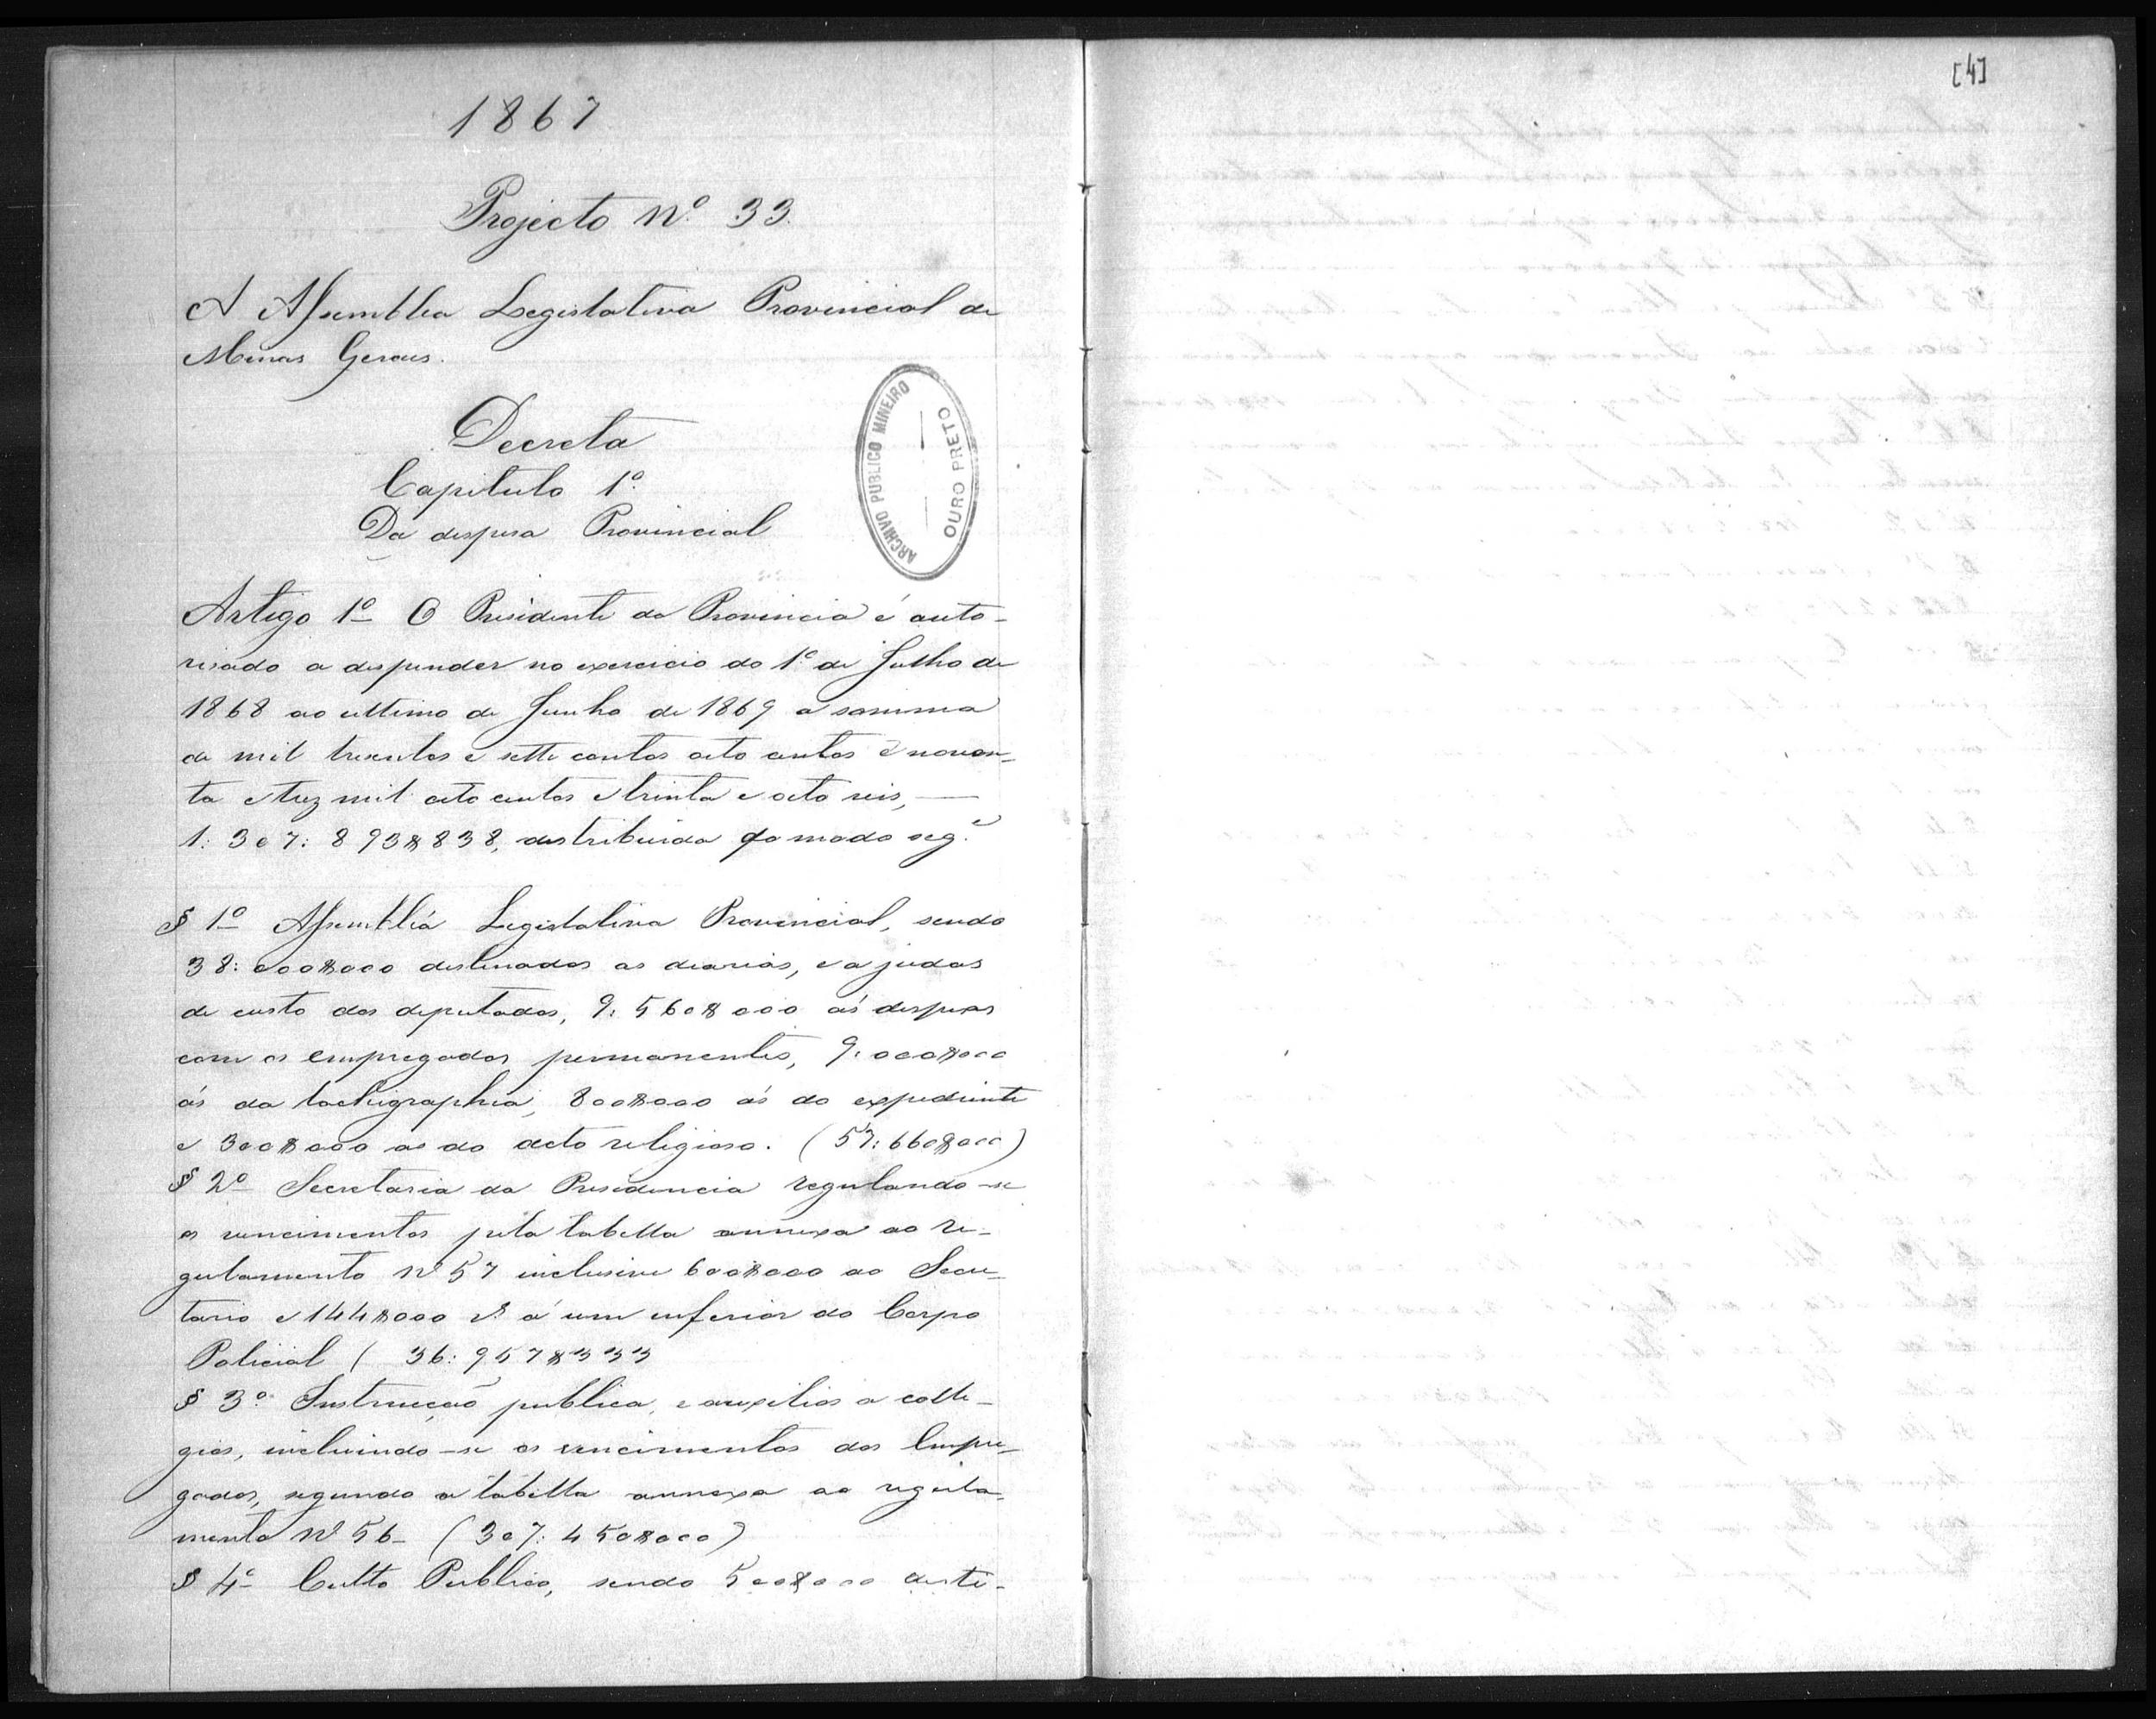 1867
Projecto Nº 33.
A Assemblea Legislativa Provincial de
Minas Geraes.
Decreta
Capitulo 1º
Da despesa Provincial
ARCHIVO PUBLICO MINEIRO
OURO PRETO
Artigo 1º O Presidente da Provincia é auto-
risado a despender no exercicio do 1º de Julho de
1868 ao ultimo de Junho de 1869 a somma
de mil tresentos e sette contos oito centos e noven-
ta e trez mil oito centos e trinta e oito reis, —
1: 307: 893$838, destribuida do modo seg.e
§ 1º Assembléa Legislativa Provincial, sendo
38: 000$000 destinados as diarias, e ajudas
de custo dos deputados, 9: 560$000 ás despesas
com os empregados permanentes, 9: 000$000
ás da tachigraphia, 800$000 ás do expediente
e 300$000 as do acto religioso. (57: 660$000)
§ 2º Secretaria da Presidencia regulando-se
os vencimentos pela tabella annexa ao re-
gulamento Nº 57 inclusive 600$000 ao Secre-
tario e 144$000 rs a um inferior do Corpo
Policial ( 36: 957$333
§ 3º Instrucção publica, e auxilios a colle-
gios, incluindo-se os vencimentos dos Empre-
gados, segundo a tabella annexa ao regula-
mento Nº 56- (307: 450$000)
§ 4º Culto Publico, sendo 500$000 desti-
[4]